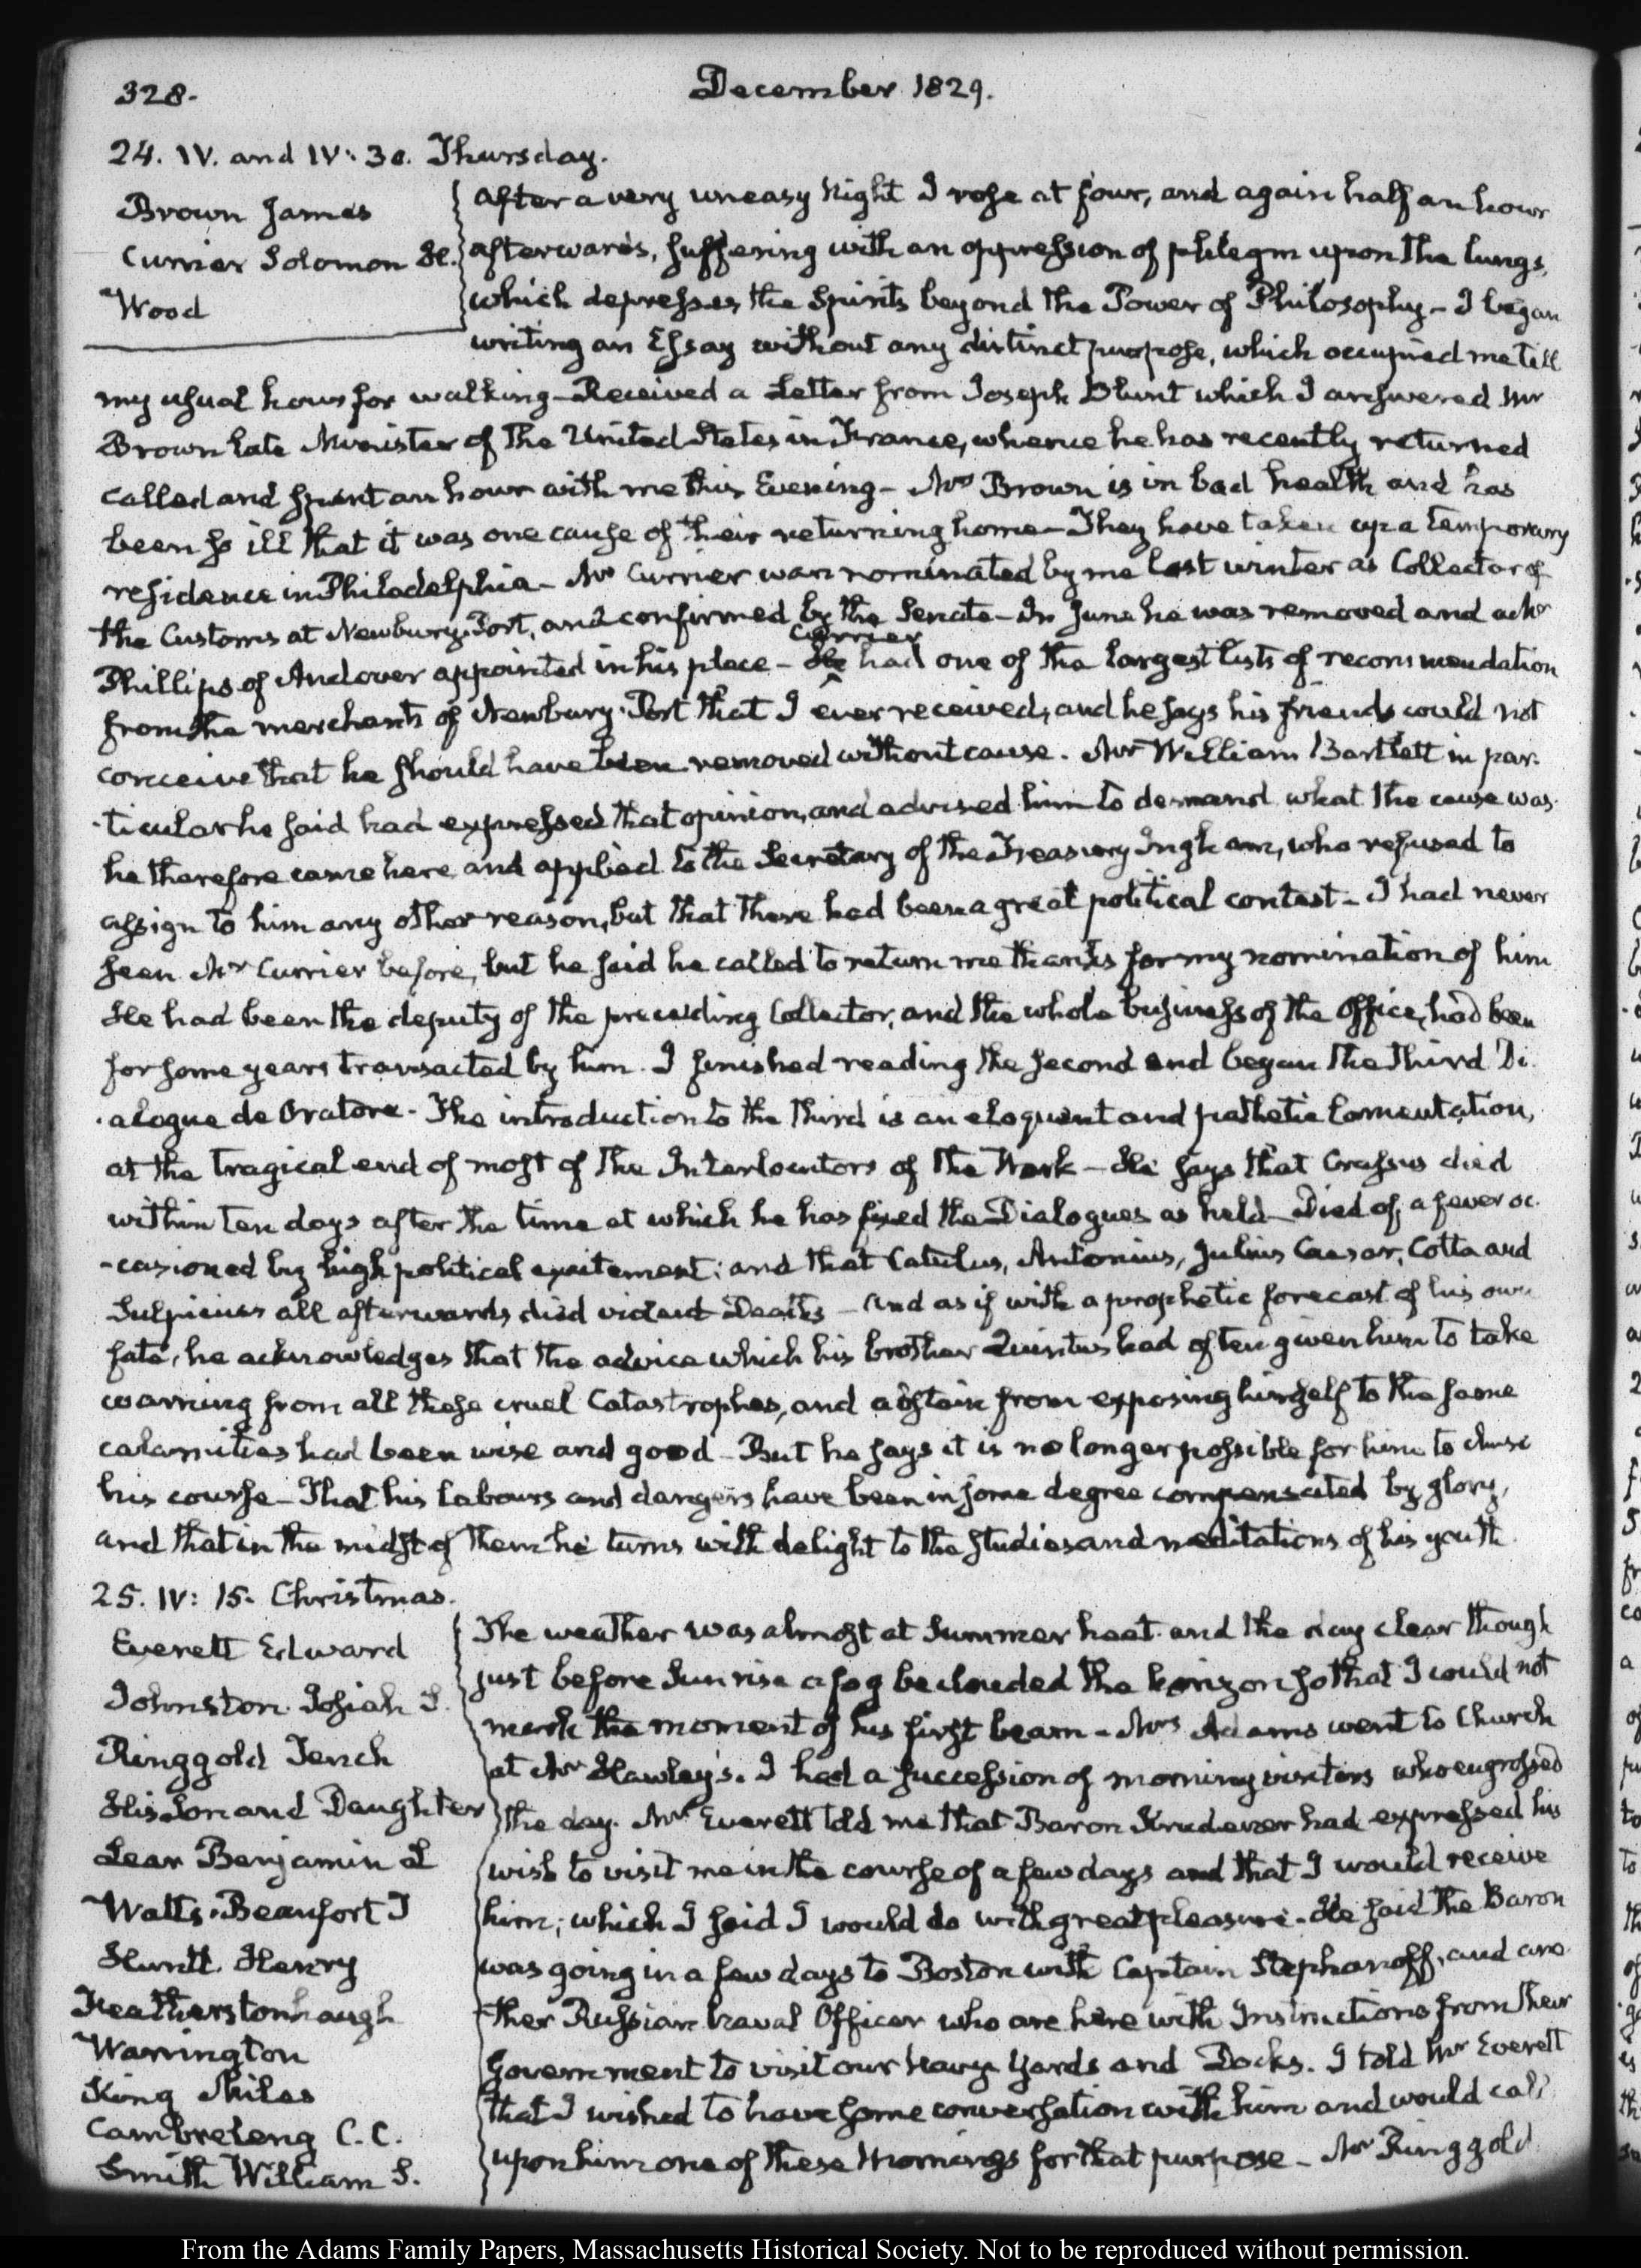 328.
December 1829.
24. IV. and IV: 30. Thursday.
Brown James
Currier Solomon H.
Wood
After a very uneasy Night I rose at four, and again half an hour
afterwards, suffering with an oppression of phlegm upon the lungs,
which depresses the Spirits beyond the Power of Philosophy – I began
writing an Essay without any distinct purpose, which occupied me till
my usual hour for walking – Received a Letter from Joseph Blunt which I answered Mr
Brown late Minister of the United States in France, whence he has recently returned
called and spent an hour with me this Evening – Mrs Brown is in bad health and has
been so ill that it was one cause of their returning home – They have taken up a temporary
residence in Philadelphia – Mr Currier was nominated by me last winter as Collector of
the Customs at Newbury-Port, and confirmed by the Senate – In June he was removed and a Mr
Phillips of Andover appointed in his place – He Currier had one of the largest lists of recommendation
from the merchants of Newbury-Port that I ever received, and he says his friends could not
conceive that he should have been removed without cause. Mr William Bartlett in par-
-ticular he said had expressed that opinion, and advised him to demand what the cause was.
he therefore came here and applied to the Secretary of the Treasury Ingham, who refused to
assign to him any other reason, but that there had been a great political contest – I had never
seen Mr Currier before, but he said he called to return me thanks for my nomination of him
He had been the deputy of the preceding Collector, and the whole business of the Office, had been
for some years transacted by him. I finished reading the second and began the third Di-
-alogue de Oratore – The introduction to the third is an eloquent and pathetic lamentation,
at the tragical end of most of the Interlocutors of the Work – He says that Crassus died
within ten days after the time at which he has fixed the Dialogues as held – Died of a fever oc-
-casioned by high political excitement; and that Catulus, Antonius, Julius Caesar, Cotta and
Sulpicius all afterwards died violent Deaths – And as if with a prophetic forecast of his own
fate, he acknowledges that the advice which his brother Quintus had often given him to take
warning from all these cruel Catastrophes, and abstain from exposing himself to the same
calamities had been wise and good – But he says it is no longer possible for him to chuse
his course – That his labours and dangers have been in some degree compensated by glory,
and that in the midst of them he turns with delight to the studies and meditations of his youth.
25. IV: 15. Christmas.
Everett Edward
Johnston Josiah S.
Ringgold Tench
His Son and Daughter
Lear Benjamin L
Watts Beaufort T
Huntt Henry
Featherstonhaugh
Warrington
King Miles
Cambreleng C. C.
Smith William S.
The weather was almost at Summer heat and the day clear though
just before Sunrise a fog beclouded the horizon so that I could not
mark the moment of his first beam – Mrs Adams went to Church
at Mr Hawley's. I had a succession of morning visitors who engrossed
the day. Mr Everett told me that Baron Krudener had expressed his
wish to visit me in the course of a few days and that I would receive
him; which I said I would do with great pleasure – He said the Baron
was going in a few days to Boston with Captain Stephanoff, and ano-
ther Russian Naval Officer who are here with Instructions from their
Government to visit our Navy Yards and Docks. I told Mr Everett
that I wished to have some conversation with him and would call
upon him one of these Mornings for that purpose – Mr Ringgold
From the Adams Family Papers, Massachusetts Historical Society. Not to be reproduced without permission.